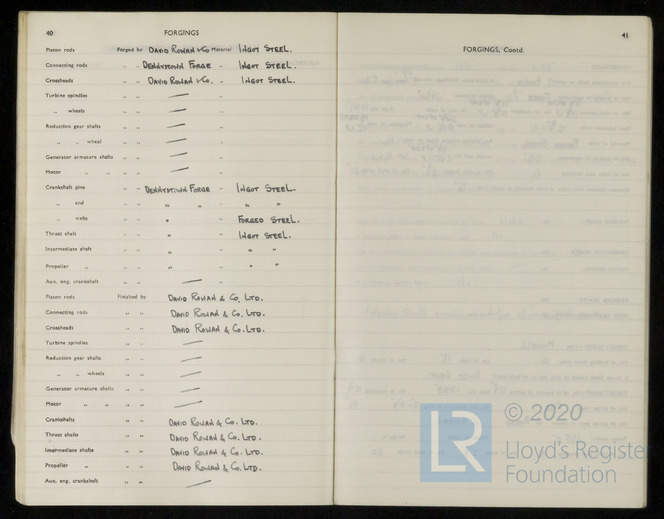 40
FORGINGS
Piston rods Forged by DAVID ROWAN & CO Material INGOT STEEL.
Connecting rods " " DENNYSTOWN FORGE " INGOT STEEL.
Crossheads " " DAVID ROWAN & CO. " INGOT STEEL.
Turbine spindles " " — "
" wheels " " — "
Reduction gear shafts " " — "
" " wheel " " — "
Generator armature shafts " " — "
Motor " " " " — "
Crankshaft pins " " DENNYSTOWN FORGE " INGOT STEEL.
" end " " " " " " "
" webs " " " " FORGED STEEL.
Thrust shaft " " " " INGOT STEEL.
Intermediate shaft " " " " " "
Propeller " " " " " " "
Aux. eng. crankshaft " " — "
Piston rods Finished by DAVID ROWAN & CO. LTD.
Connecting rods " " DAVID ROWAN & CO. LTD.
Crossheads " " DAVID ROWAN & CO. LTD.
Turbine spindles " " —
Reduction gear shafts " " —
" " wheels " " —
Generator armature shafts " " —
Motor " " " " —
Crankshafts " " DAVID ROWAN & CO. LTD.
Thrust shafts " " DAVID ROWAN & CO. LTD.
Intermediate shafts " " DAVID ROWAN & CO. LTD.
Propeller " " " DAVID ROWAN & CO. LTD.
Aux. eng. crankshaft " " —
41
FORGINGS, Contd.
LR
© 2020
Lloyd's Register
Foundation